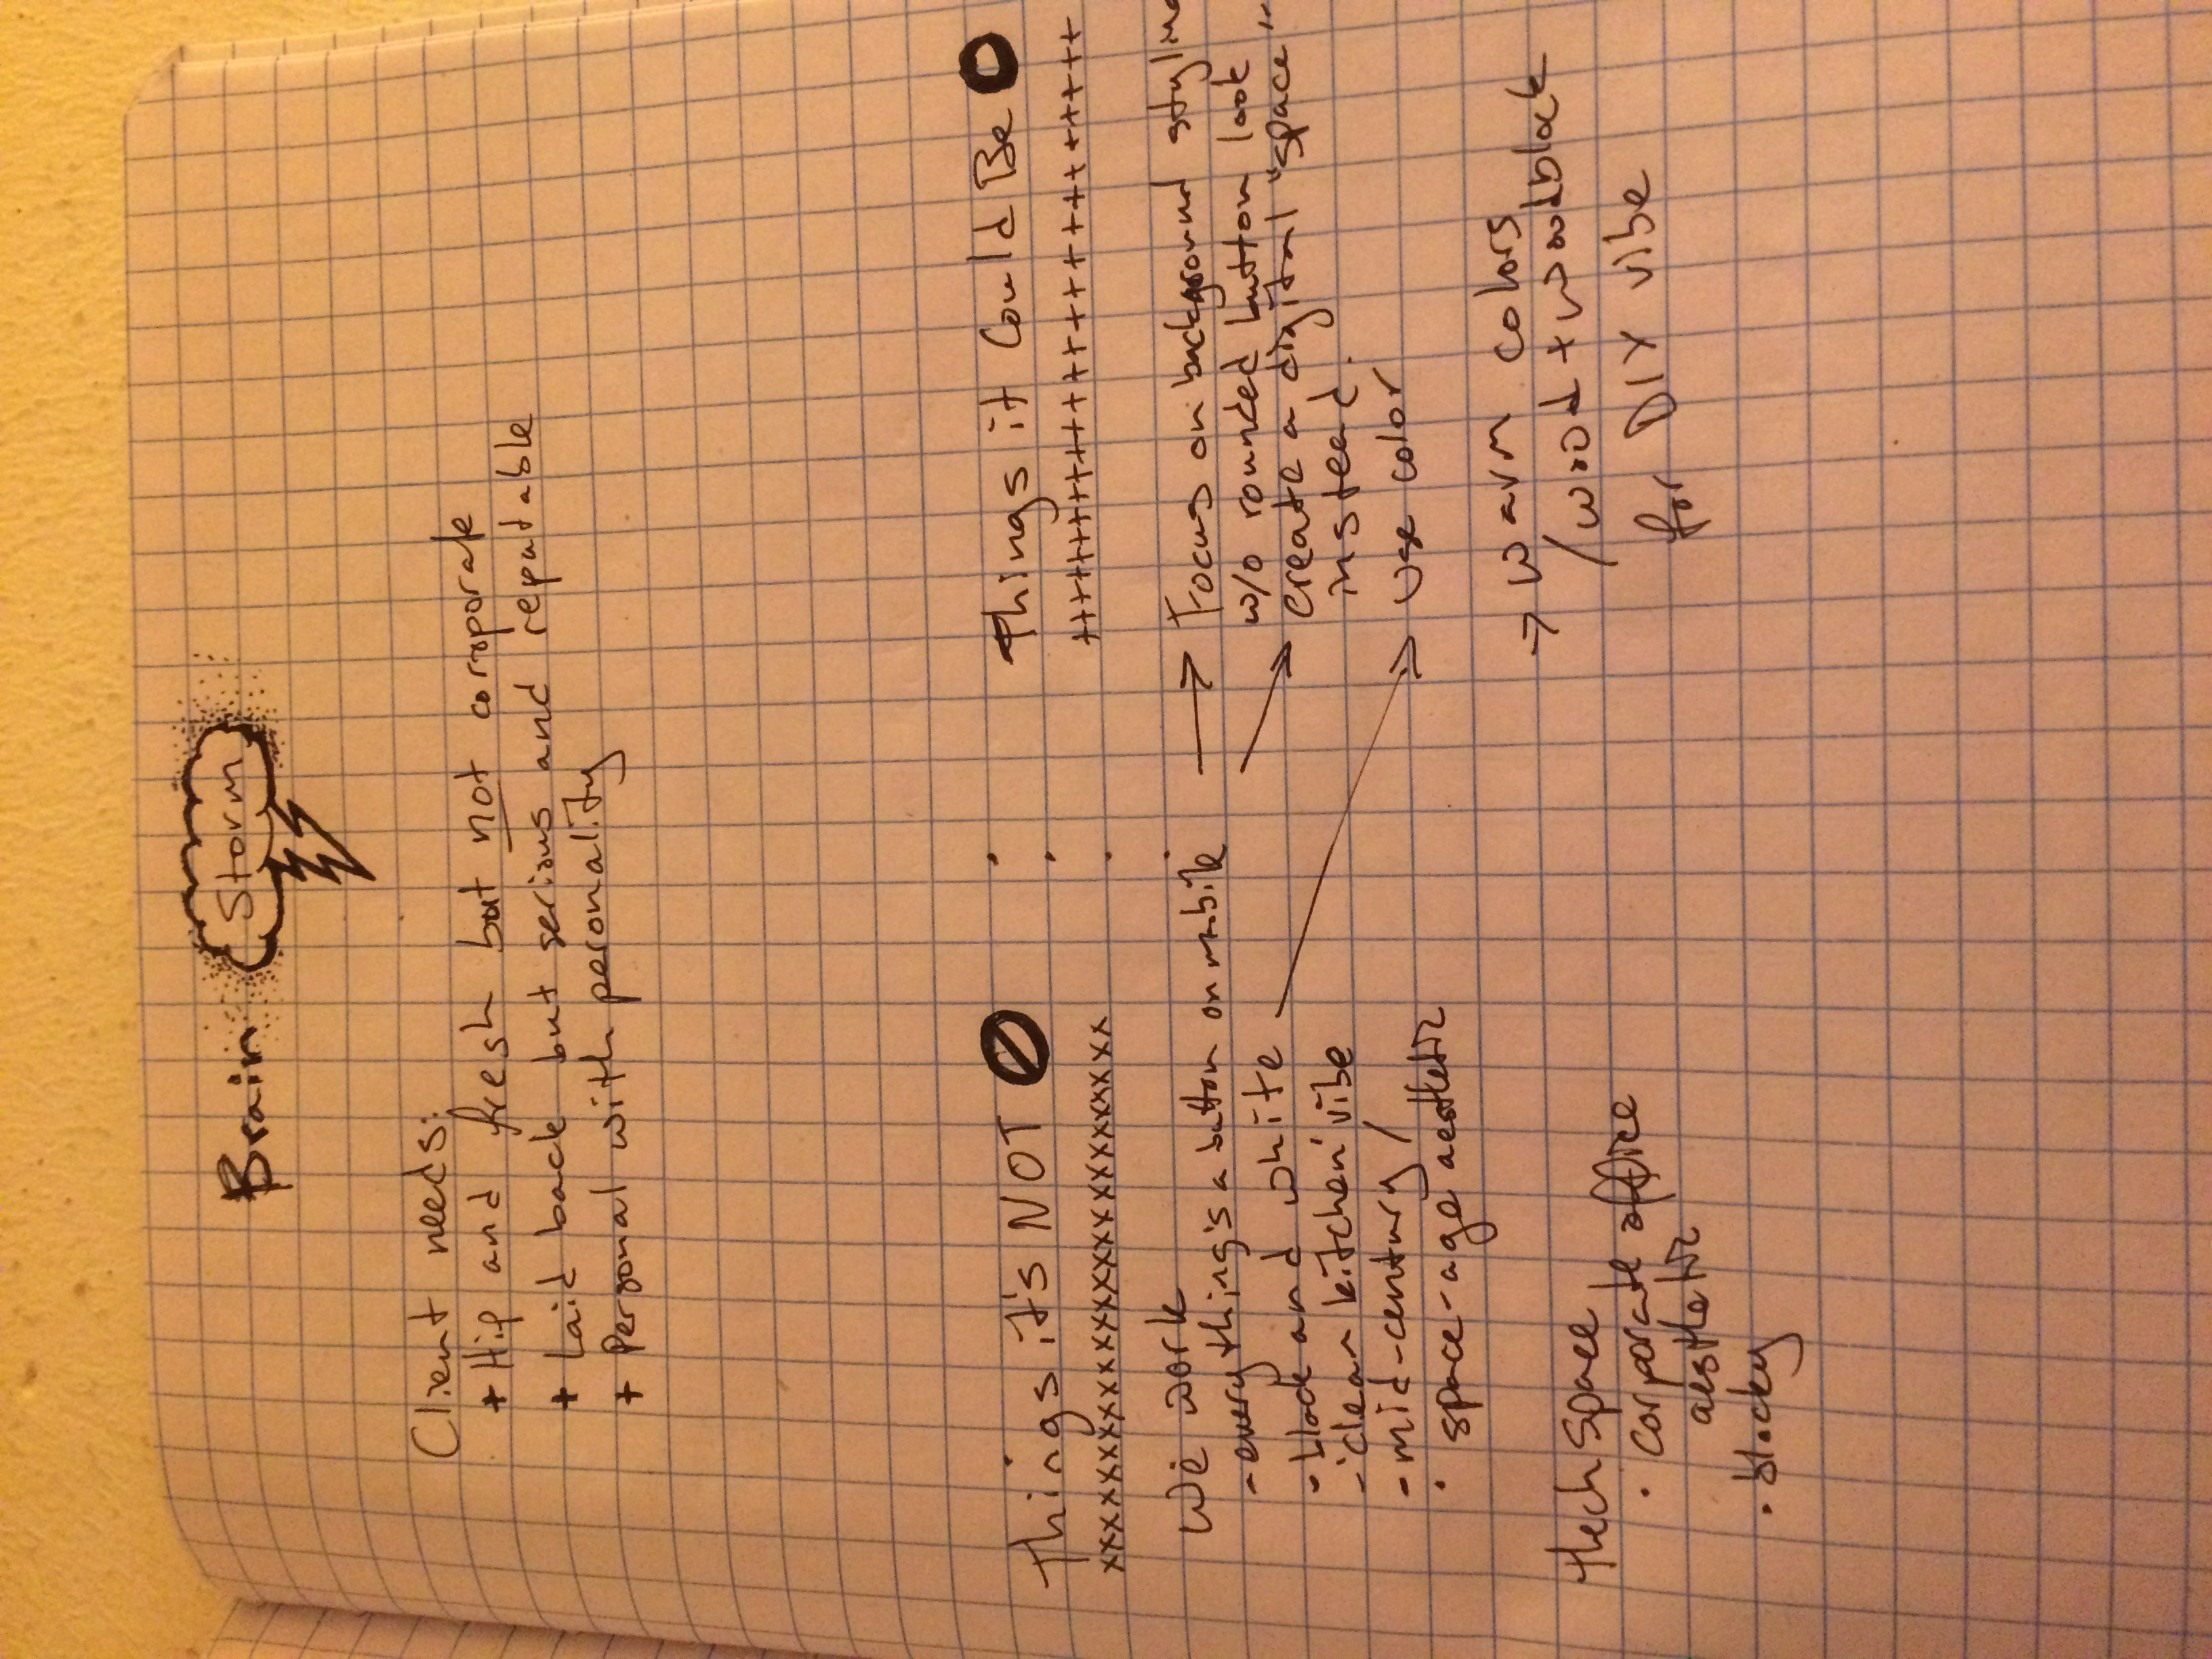 Brain Storm
Client needs:
+ Hip and fresh but not corporate
+ Laid back but serious and reputable
+ Personal with peronality
Things it's NOT
xxxxxxxxxxxxxxxxxxxxxxxxx
We work
- everything's a button on mobile
- black and white
- 'clean kitchen' vibe
- mid-century /
space-age aesthetic
space
· corporate office
aesthetic
· blocky
Things it Could Be
+++++++++++++++++++++++++
→ Focus on background styling
w/o rounded button look
→ create a digital "space"
instead.
→ Use color
→ warm colors
/wood + woodblock
for DIY vibe